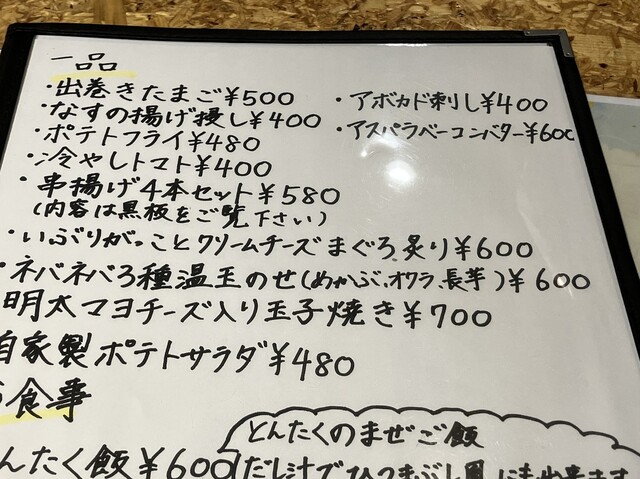 一品
・出巻きたまご¥500
・なすの揚げ浸し¥400
・ポテトフライ¥480
・冷やしトマト¥400
・串揚げ4本セット¥580
(内容は黒板をご覧下さい)
・いぶりがっことクリームチーズまぐろ炙り¥600
・ネバネバ3種温玉のせ(めかぶ、オクラ、長芋)¥600
明太マヨチーズ入り玉子焼き¥700
自家製ポテトサラダ¥480
・アボカド刺し¥400
・アスパラベーコンバター¥600
食事
んたく飯¥600
とんたくのまぜご飯
だし汁でひつまぶし風にも出来ます